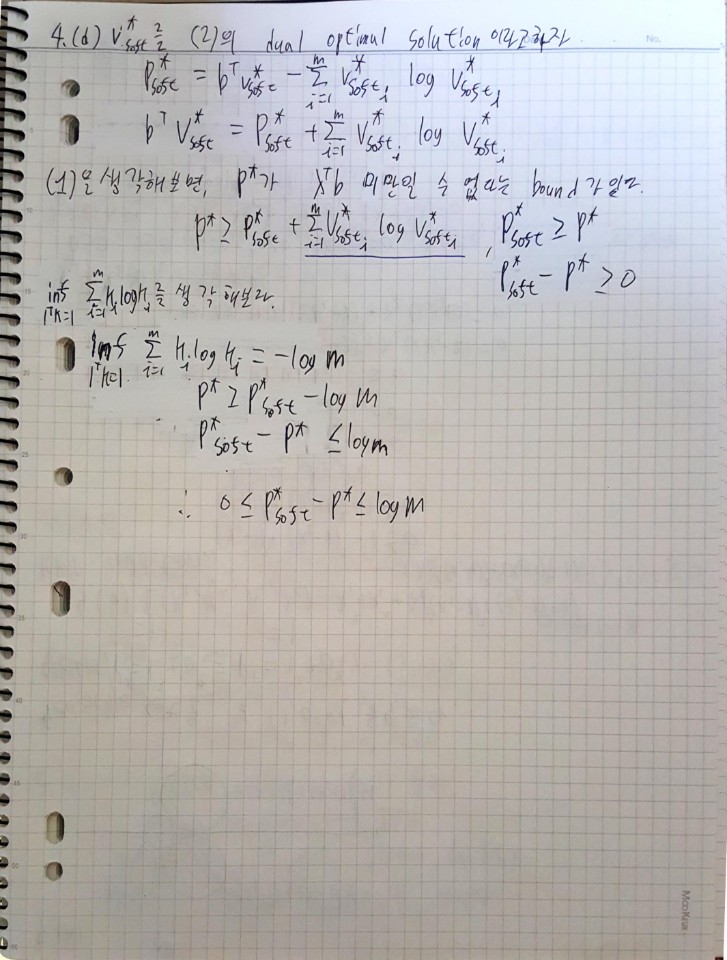 4.(d) V*soft를 (2)의 dual optimal solution 이라고하자
P*soft = b^T V*soft - Σ_{i=1}^{m} V*soft_i log V*soft_i
b^T V*soft = P*soft + Σ_{i=1}^{m} V*soft_i log V*soft_i
(1)을 생각해보면, P*가 λ^T b 미만일 수 없다는 bound가 있고.
P* ≥ P*soft + Σ_{i=1}^{m} V*soft_i log V*soft_i , P*soft ≥ P*
P*soft - P* ≥ 0
inf_{1^T K=1} Σ_{i=1}^{m} K_i log K_i 를 생각해보라.
inf_{1^T K=1} Σ_{i=1}^{m} K_i log K_i = -log m
P* ≥ P*soft - log m
P*soft - P* ≤ log m
∴ 0 ≤ P*soft - P* ≤ log m
No.